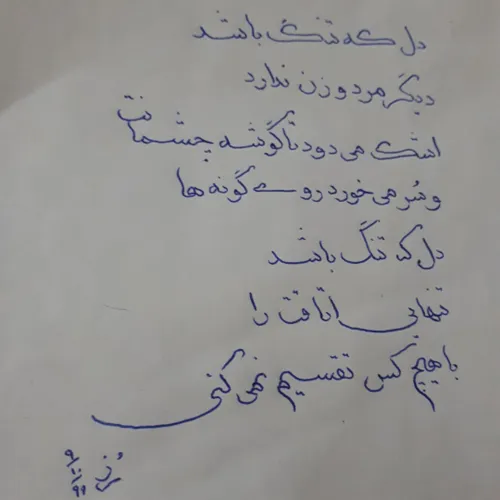 دل که تنگ باشد
دیگر مرد و زن ندارد
اشک می دود تا گوشه چشمانت
و سُر می خورد روی گونه ها
دل که تنگ باشد
تنهایی اتاقت را
با هیچ کس تقسیم نمی کنی
رُز